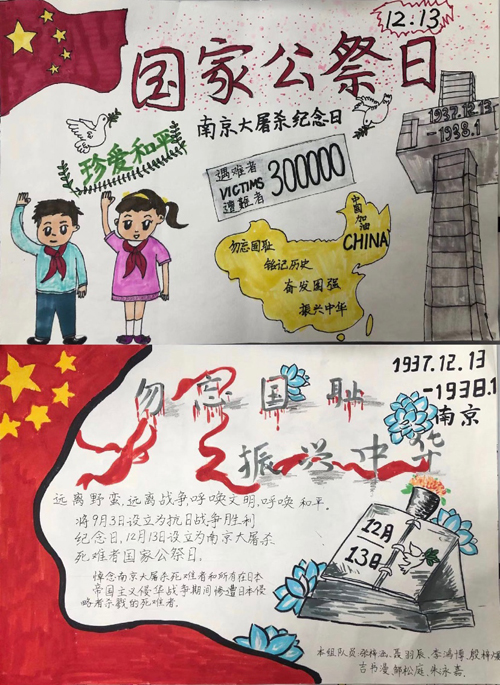 12.13
国家公祭日
南京大屠杀纪念日
珍爱和平
1937.12.13
-1938.1
遇难者
VICTIMS 300000
遭難者
中国加油
CHINA
勿忘国耻
铭记历史
奋发图强
振兴中华
1937.12.13
-1938.1
南京
勿忘国耻
振兴中华
远离野蛮,远离战争,呼唤文明,呼唤和平。
将9月3日设立为抗日战争胜利
纪念日,12月13日设立为南京大屠杀
死难者国家公祭日。
悼念南京大屠杀死难者和所有在日本
帝国主义侵华战争期间惨遭日本侵
略者杀戮的死难者。
12月
13日
本组队员:
聂羽辰、李鸿博、殷梓
吉书漫、邹松庭、朱永嘉